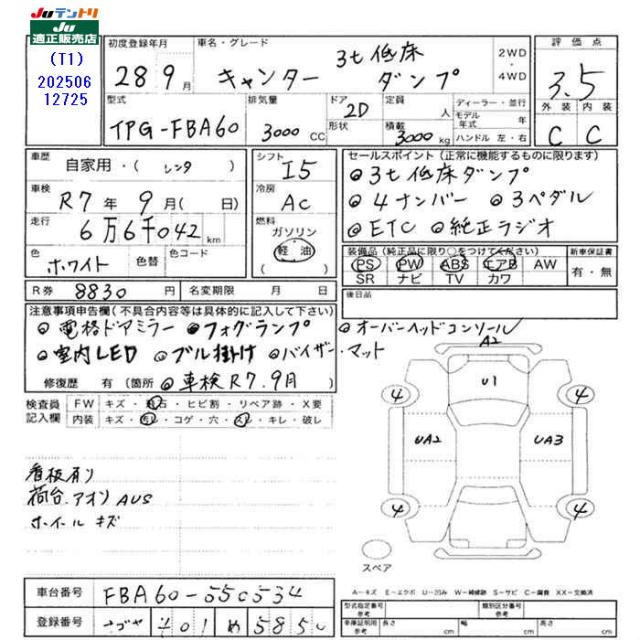 JUテントリ
JU
適正販売店
(T1)
202506
12725
初度登録年月
28 9月
車名・グレード
キャンター 3t低床 ダンプ
2WD
・
4WD
評価点
3.5
外装 内装
C C
型式
TPG-FBA60
排気量
3000 CC
ドア 2D
形状
定員 人
積載 3000 kg
ディーラー・並行
モデル年式 年
ハンドル 左・右
車歴
自家用・(レンタ)
シフト
I5
車検
R7年 9月( 日)
冷房
AC
走行
6万6千042 km
燃料
ガソリン
軽油
色
ホワイト
色替
色コード
セールスポイント(正常に機能するものに限ります)
◎3t低床ダンプ
◎4ナンバー ◎3ペダル
◎ETC ◎純正ラジオ
装備品(純正品に限り○をつけてください)
PS PW ABS エアB AW
SR ナビ TV カワ
新車保証書
有・無
R券 8830円
名変期限 月 日
後日品
注意事項申告欄(不具合内容等は具体的に記入して下さい)
◎電格ドアミラー ◎フォグランプ ◎オーバーヘッドコンソール
◎室内LED ◎ブル掛け ◎バイザー・マット
修復歴 有(箇所 ◎車検R7.9月
検査員記入欄
FW キズ・飛石・ヒビ割・リペア跡・X要
内装 キズ・汚レ・コゲ・穴・スレ・キレ・破レ
看板有り
荷台.アオリAUS
ホイールキズ
A2
U1
4 4
UA2 UA3
4 4
スペア
A－キズ E－エクボ U－凹み W－補修跡 S－サビ C－腐食 XX－交換済
車台番号 FBA60-550534
登録番号
型式指定番号 参考
類別区分番号 参考
車庫証明用 参考
長さ cm 幅 cm 高さ cm